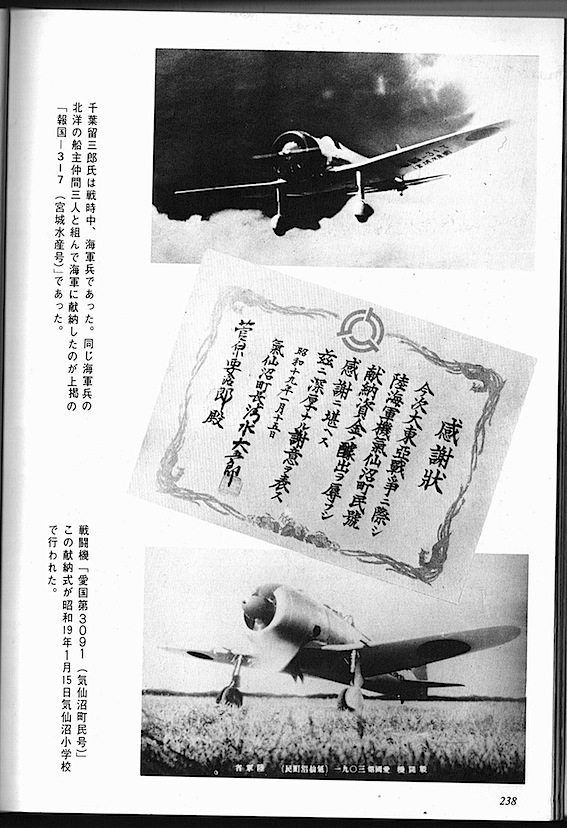 千葉留三郎氏は戦時中、海軍兵であった。同じ海軍兵の
北洋の船主仲間三人と組んで海軍に献納したのが上掲の
「報国―317（宮城水産号）」であった。
感謝状
今次大東亞戰爭ニ際シ
陸海軍機氣仙沼町民號
献納資金ノ醵出ヲ辱フシ
感謝ニ堪ヘス
茲ニ深厚ナル謝意ヲ表ス
昭和十九年一月十五日
氣仙沼町長
殿
戦闘機「愛国第3091（気仙沼町民号）」
この献納式が昭和19年1月15日気仙沼小学校
で行われた。
戰鬪機 愛國第三〇九一（氣仙沼町民） 陸軍省
238